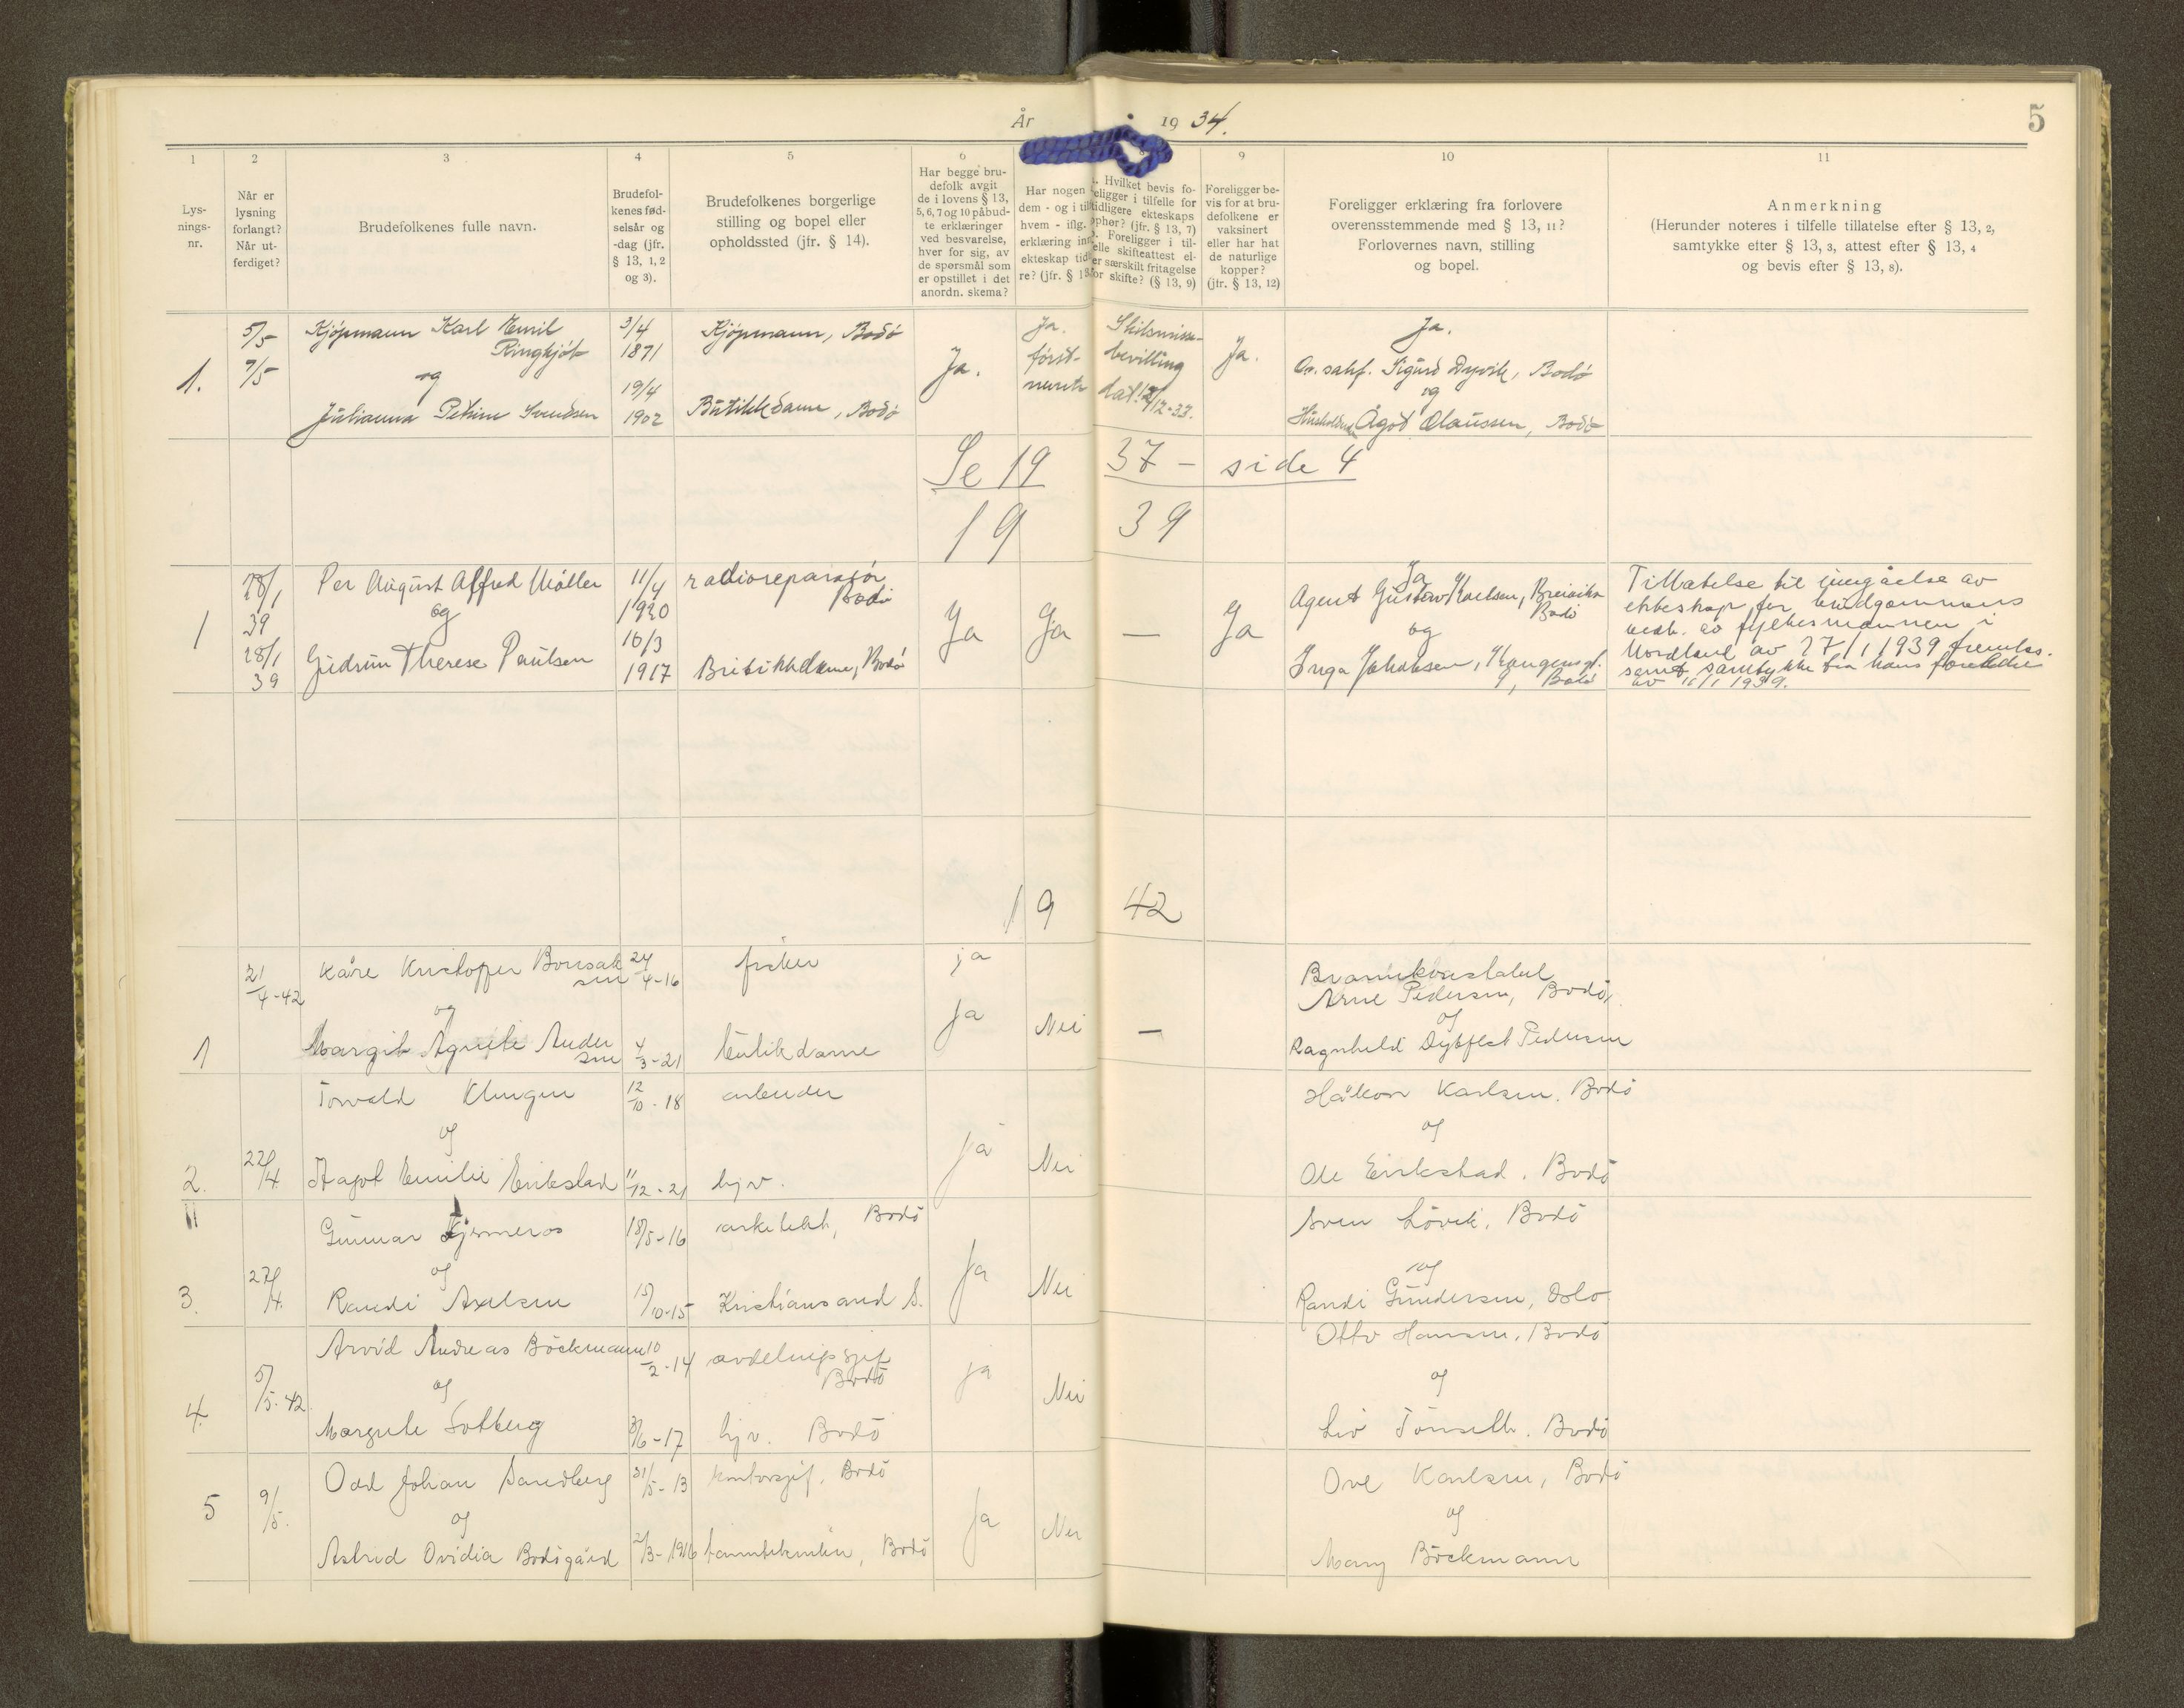 År 1934.
5
1
2
3
4
5
6
8
9
10
11
Lys-
nings-
nr.
Når er
lysning
forlangt?
Når ut-
ferdiget?
Brudefolkenes fulle navn.
Brudefol-
kenes fød-
selsår og
-dag (jfr.
§ 13, 1, 2
og 3).
Brudefolkenes borgerlige
stilling og bopel eller
opholdssted (jfr. § 14).
Har begge bru-
defolk avgit
de i lovens § 13,
5, 6, 7 og 10 påbud-
te erklæringer
ved besvarelse,
hver for sig, av
de spørsmål som
er opstillet i det
anordn. skema?
Har nogen
dem - og i til
hvem - iflg.
erklæring inn
ekteskap tid
re? (jfr. § 13
Hvilket bevis fo-
religger i tilfelle for
tidligere ekteskaps
ophør? (jfr. § 13, 7)
Foreligger i til-
felle skifteattest el-
ler særskilt fritagelse
for skifte? (§ 13, 9)
Foreligger be-
vis for at bru-
defolkene er
vaksinert
eller har hat
de naturlige
kopper?
(jfr. § 13, 12)
Foreligger erklæring fra forlovere
overensstemmende med § 13, 11?
Forlovernes navn, stilling
og bopel.
Anmerkning
(Herunder noteres i tilfelle tillatelse efter § 13, 2,
samtykke efter § 13, 3, attest efter § 13, 4
og bevis efter § 13, 8).
1.
5/5
7/5
Kjøpmann Karl Emil
Ringkjøb
og
Julianna Petrine Svendsen
3/4
1871
19/4
1902
Kjøpmann, Bodø
Butikkdame, Bodø
Ja.
Ja.
først-
nevnte
Skilsmisse-
bevilling
dat.
12-33.
Ja.
Ja.
O.r.sakf. Sigurd Dyvik, Bodø
og
Ågot Olaussen, Bodø
Se 1937 - side 4
1939
1
28/1
39
28/1
39
Per August Alfred Møller
og
Gudrun Therese Paulsen
11/4
1920
16/3
1917
radioreparatør
Bodø
Butikkdame, Bodø
Ja
Ja
—
Ja
Ja
Agent Gustav Karlsen, Breivika
Bodø
og
Inga Johansen, Kongensgt.
9, Bodø
Tillatelse til inngåelse av
ekteskap for brudgommens
vedk. av fylkesmannen i
Nordland av 27/1 1939 fremlas.
samt samtykke fra hans foreldre
av 11/1 1939.
1942
1
21/4-42
Kåre Kristoffer Bonsak
sen
og
Margit Agnete Ander
sen
24/4-16
4/3-21
fisker
butikdame
ja
Ja
Nei
—
Brannkonstabel
Arne Pedersen, Bodø.
og
Ragnhild Dybfest Pedersen
2.
22/4.
Torvald Klungen
og
Aagot Emilie Eirikstad
12/10-18
11/12-21
arbeider
hjv.
Ja
Nei
Håkon Karlsen. Bodø
og
Ole Eirikstad. Bodø
3.
27/4.
Gunnar
og
Randi Axelsen
18/5-16
15/10-15
arkitekt, Bodø
Kristiansand S.
Ja
Nei
Sven Løvik. Bodø
og
Randi Gundersen, Oslo
4.
5/5-42.
Arvid Andreas Böckmann
og
Margrete Solberg
10/2-14
/6-17
avdelingssjef
Bodø
hjv. Bodø
ja
Nei
Otto Hansen. Bodø
og
Liv . Bodø
5
9/5.
Odd Johan Sandberg
og
Astrid Ovidia Bodøgård
31/5-13
2/3-1916
kontorsjef. Bodø
tanntekniker, Bodø
Ja
Nei
Ove Karlsen, Bodø
og
Mary Böckmann